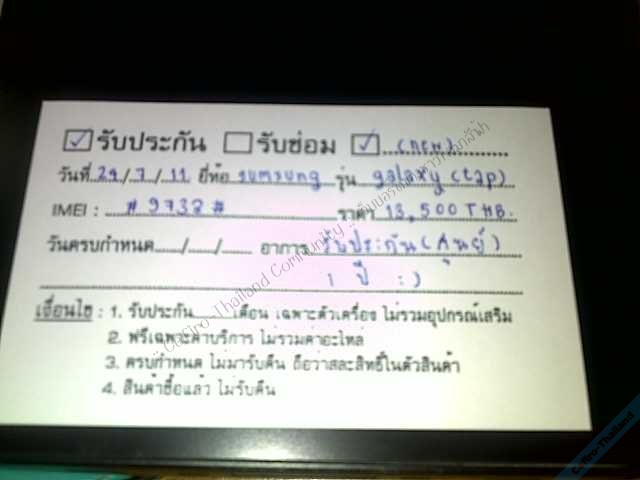 ☑ รับประกัน ☐ รับซ่อม ☑ (new)
วันที่ 29/7/11 ยี่ห้อ sumsung รุ่น galaxy (tap)
IMEI : #9732# ราคา 13,500 THB.
วันครบกำหนด....../....../...... อาการ รับประกัน (ศูนย์)
1 ปี :)
เงื่อนไข : 1. รับประกัน..........เดือน เฉพาะตัวเครื่อง ไม่รวมอุปกรณ์เสริม
2. ฟรีเฉพาะค่าบริการ ไม่รวมค่าอะไหล่
3. ครบกำหนด ไม่มารับคืน ถือว่าสละสิทธิ์ในตัวสินค้า
4. สินค้าซื้อแล้ว ไม่รับคืน
Cockiro-Thailand Community